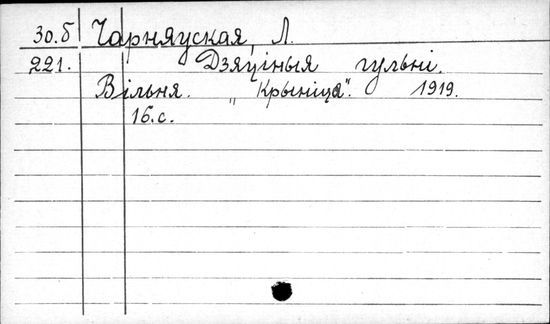 30.б Чарняуская, Л.
221. Дзяціныя гульні.
Вільня. „Крыніца". 1919.
16.с.